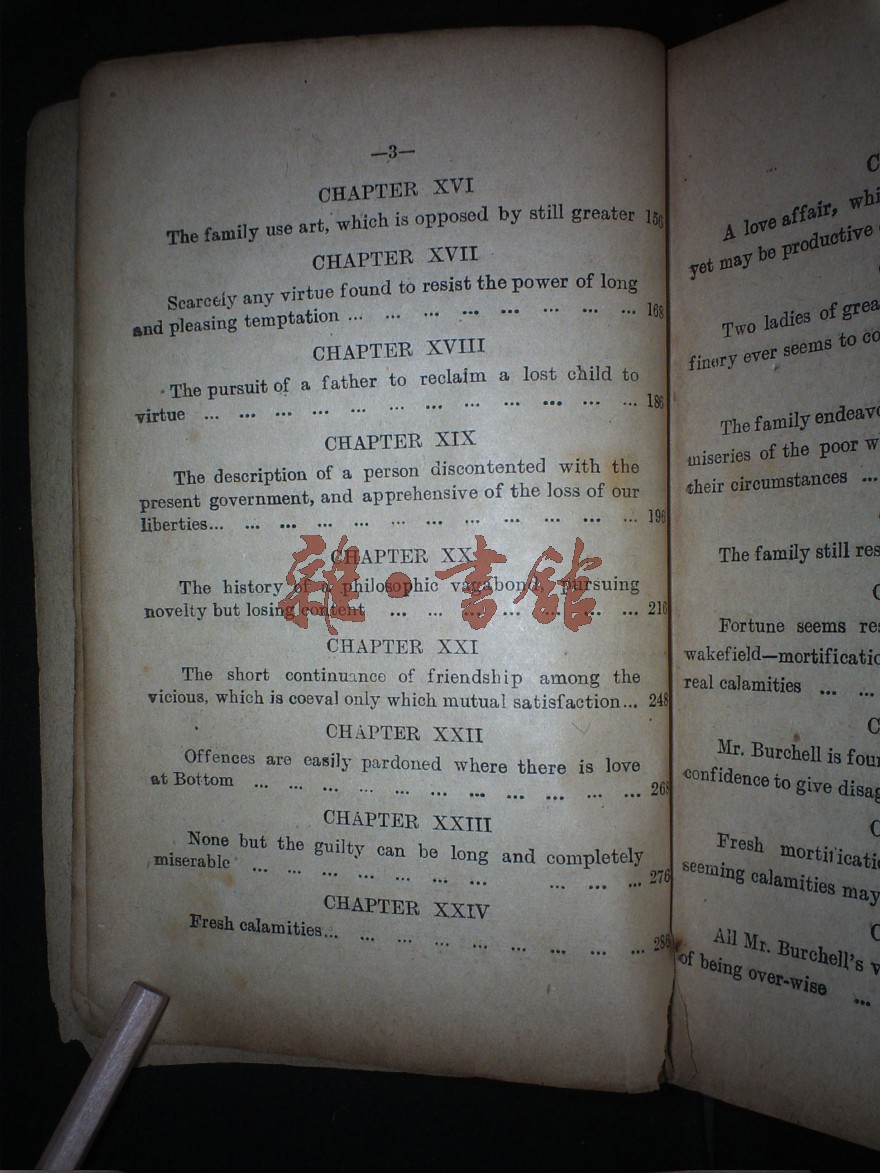 —3—
CHAPTER XVI
The family use art, which is opposed by still greater 156
CHAPTER XVII
Scarcely any virtue found to resist the power of long
and pleasing temptation ... ... ... ... ... ... ... ... 168
CHAPTER XVIII
The pursuit of a father to reclaim a lost child to
virtue ... ... ... ... ... ... ... ... ... ... ... ... 186
CHAPTER XIX
The description of a person discontented with the
present government, and apprehensive of the loss of our
liberties... ... ... ... ... ... ... ... ... ... ... ... 196
CHAPTER XX
The history of a philosophic vagabond, pursuing
novelty but losing content ... ... ... ... ... ... ... 216
CHAPTER XXI
The short continuance of friendship among the
vicious, which is coeval only which mutual satisfaction... 248
CHAPTER XXII
Offences are easily pardoned where there is love
at Bottom ... ... ... ... ... ... ... ... ... ... ... 268
CHAPTER XXIII
None but the guilty can be long and completely
miserable ... ... ... ... ... ... ... ... ... ... 276
CHAPTER XXIV
Fresh calamities... ... ... ... ... ... ... ... ... 286
雜·書館
A love affair, whi
yet may be productive
Two ladies of grea
finery ever seems to co
The family endeavo
miseries of the poor w
their circumstances ...
The family still res
Fortune seems re
wakefield—mortificatio
real calamities ... ...
Mr. Burchell is foun
confidence to give disag
Fresh mortificatio
seeming calamities may
All Mr. Burchell's v
of being over-wise ...